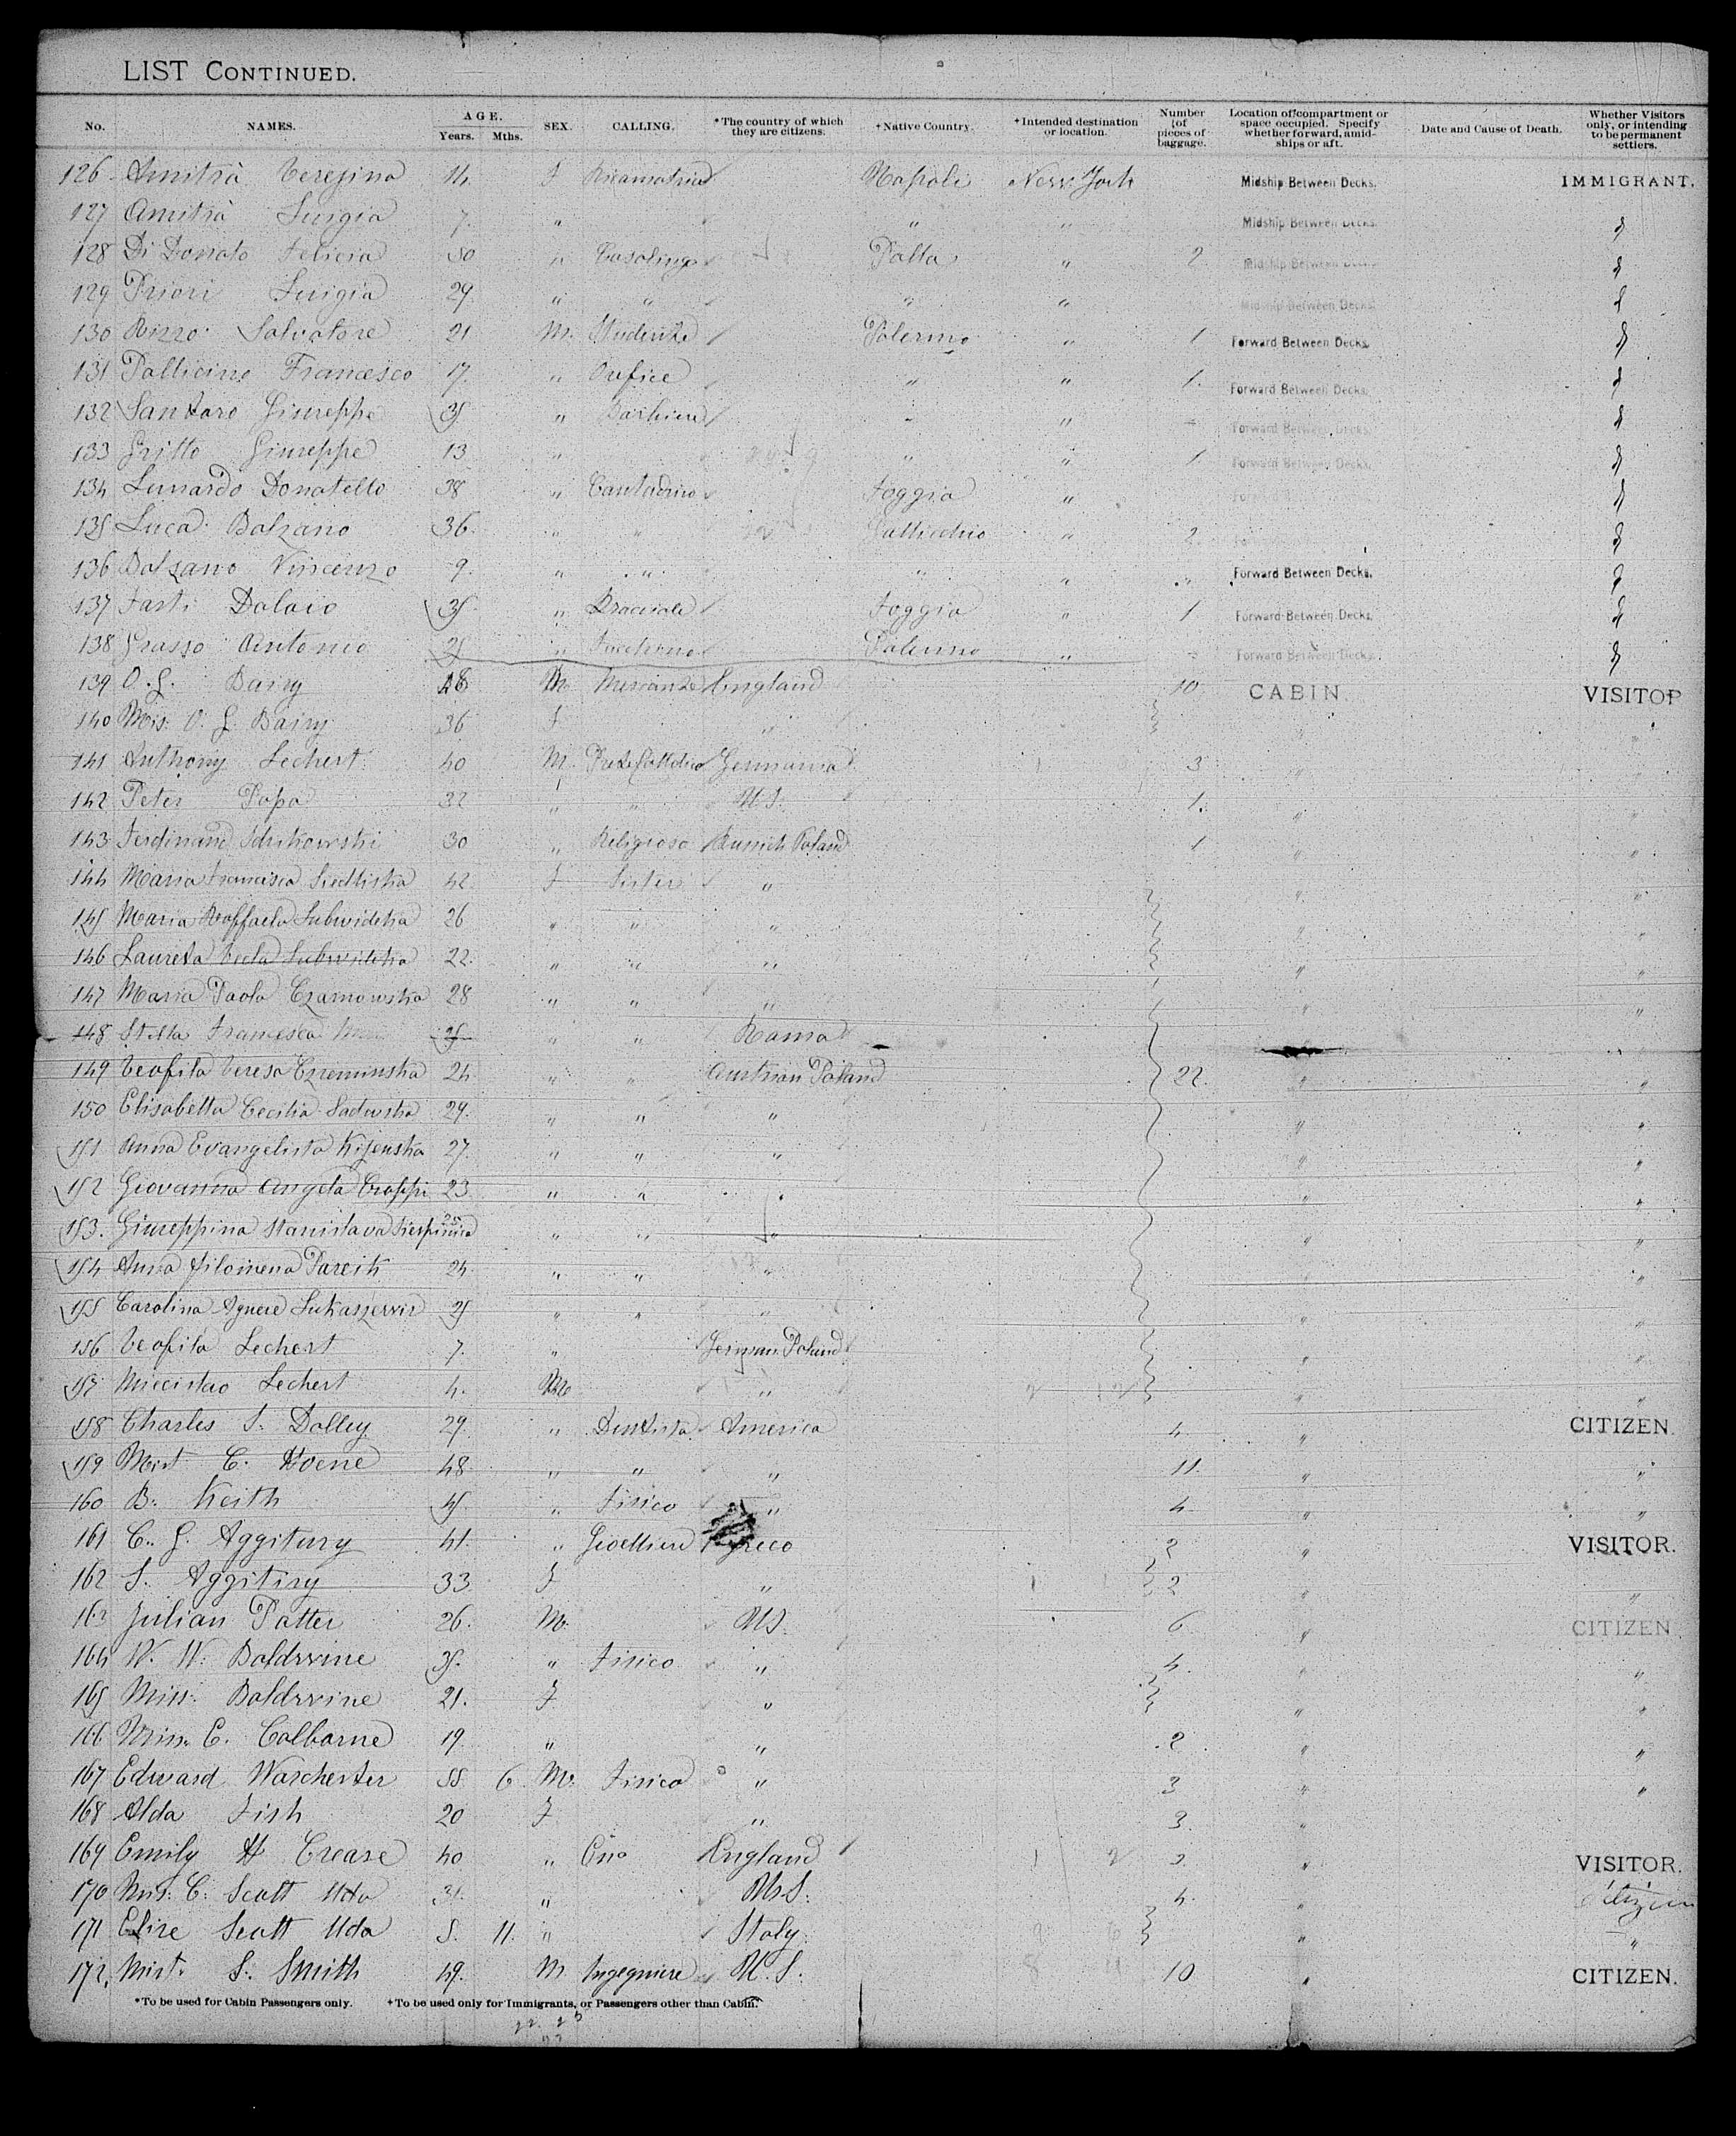 LIST CONTINUED.
No. NAMES. AGE. Years. Mths. SEX. CALLING. *The country of which they are citizens. +Native Country. +Intended destination or location. Number of pieces of baggage. Location of compartment or space occupied. Specify whether forward, amidships or aft. Date and Cause of Death. Whether Visitors only, or intending to be permanent settlers.
126 Amitrà Teresina 14. F Ricamatrice Napoli New York Midship Between Decks. IMMIGRANT.
127 Amitrà Luigia 7. " " " Midship Between Decks. "
128 Di Donato Felicia 50 " Casalinga Patta " 2 Midship Between Decks. "
129 Priori Luigia 29. " " " " Midship Between Decks. "
130 Rizzo Salvatore 21 M. Studente Palermo " 1 Forward Between Decks. "
131 Pollicino Francesco 17. " Orefice " " 1. Forward Between Decks. "
132 Santoro Giuseppe 35 " Barbiere " " Forward Between Decks. "
133 Gritto Giuseppe 13 " " " 1 Forward Between Decks. "
134 Lunardo Donatello 38 " Contadino Foggia " "
135 Luca Balzano 36. " " Gallicchio " 2. "
136 Balzano Vincenzo 9. " " " " " Forward Between Decks. "
137 Fasti Dalaio 35 " Bracciale Foggia " 1 Forward Between Decks. "
138 Grasso Antonio 25 " Palermo " Forward Between Decks. "
139 O. G. Bainy 48 M. England 10 CABIN. VISITOR
140 Mrs. O. G. Bainy 36 F " " "
141 Anthony Lechert 40 M. Prete Cattolico Germania 3 " "
142 Peter Papa 32 " " U.S. 1. " "
143 Ferdinand 30 " Religioso Russich Poland 1 " "
144 Maria Francisca Siedliska 42 F Sister " " "
145 Maria Raffaela Lubwidzka 26 " " " " "
146 Laureta Tecla Lubwidzka 22. " " " " "
147 Maria Paola Czarnowska 28 " " " " "
148 Stella Francesca 25 " " Roma " "
149 Teofila Teresa Czeminska 24 " " Austrian Poland 22. " "
150 Elisabetta Cecilia Sadowska 29. " " " " "
151 Anna Evangelista Kijenska 27. " " " " "
152 Giovanna Angela Croppi 23 " " " " "
153. Giuseppina Stanislava " " " " "
154 Anna Filomena Pareik 24. " " " " "
155 Carolina Agnese Lukaszewicz 25 " " " " "
156 Teofila Lechert 7. " German Poland " "
157 Miecislao Lechert 4. M. " " "
158 Charles S. Dolley 29. " Dentista America 4 " CITIZEN
159 Mist C. Hoene 48 " " " 11. " "
160 B. Keith 45. " Fisico " 4 " "
161 C. G. Aggitury 41. " Gioelliere greco 2 " VISITOR.
162 S. Aggitiry 33 F " 2 " "
163 Julian Potter 26. M. US. 6 " CITIZEN
164 W. W. Baldwine 35. " Fisico " 4. " "
165 Miss. Baldwine 21. F " " "
166 Miss. E. Colbarne 19. " " 2 " "
167 Edward Warchester 55 6 M. Fisico " 3 " "
168 Alda Fish 20 F " 3. "
169 Emily H Crease 40 " England 3 " VISITOR.
170 Mrs. C. Scott Uda 31. " U.S. 4. " Citizen
171 Elise Scott Uda 5. 11. " Italy. " "
172. Mist. S. Smith 49. M. Ingegniere U.S. 10 " CITIZEN.
*To be used for Cabin Passengers only. +To be used only for Immigrants, or Passengers other than Cabin.